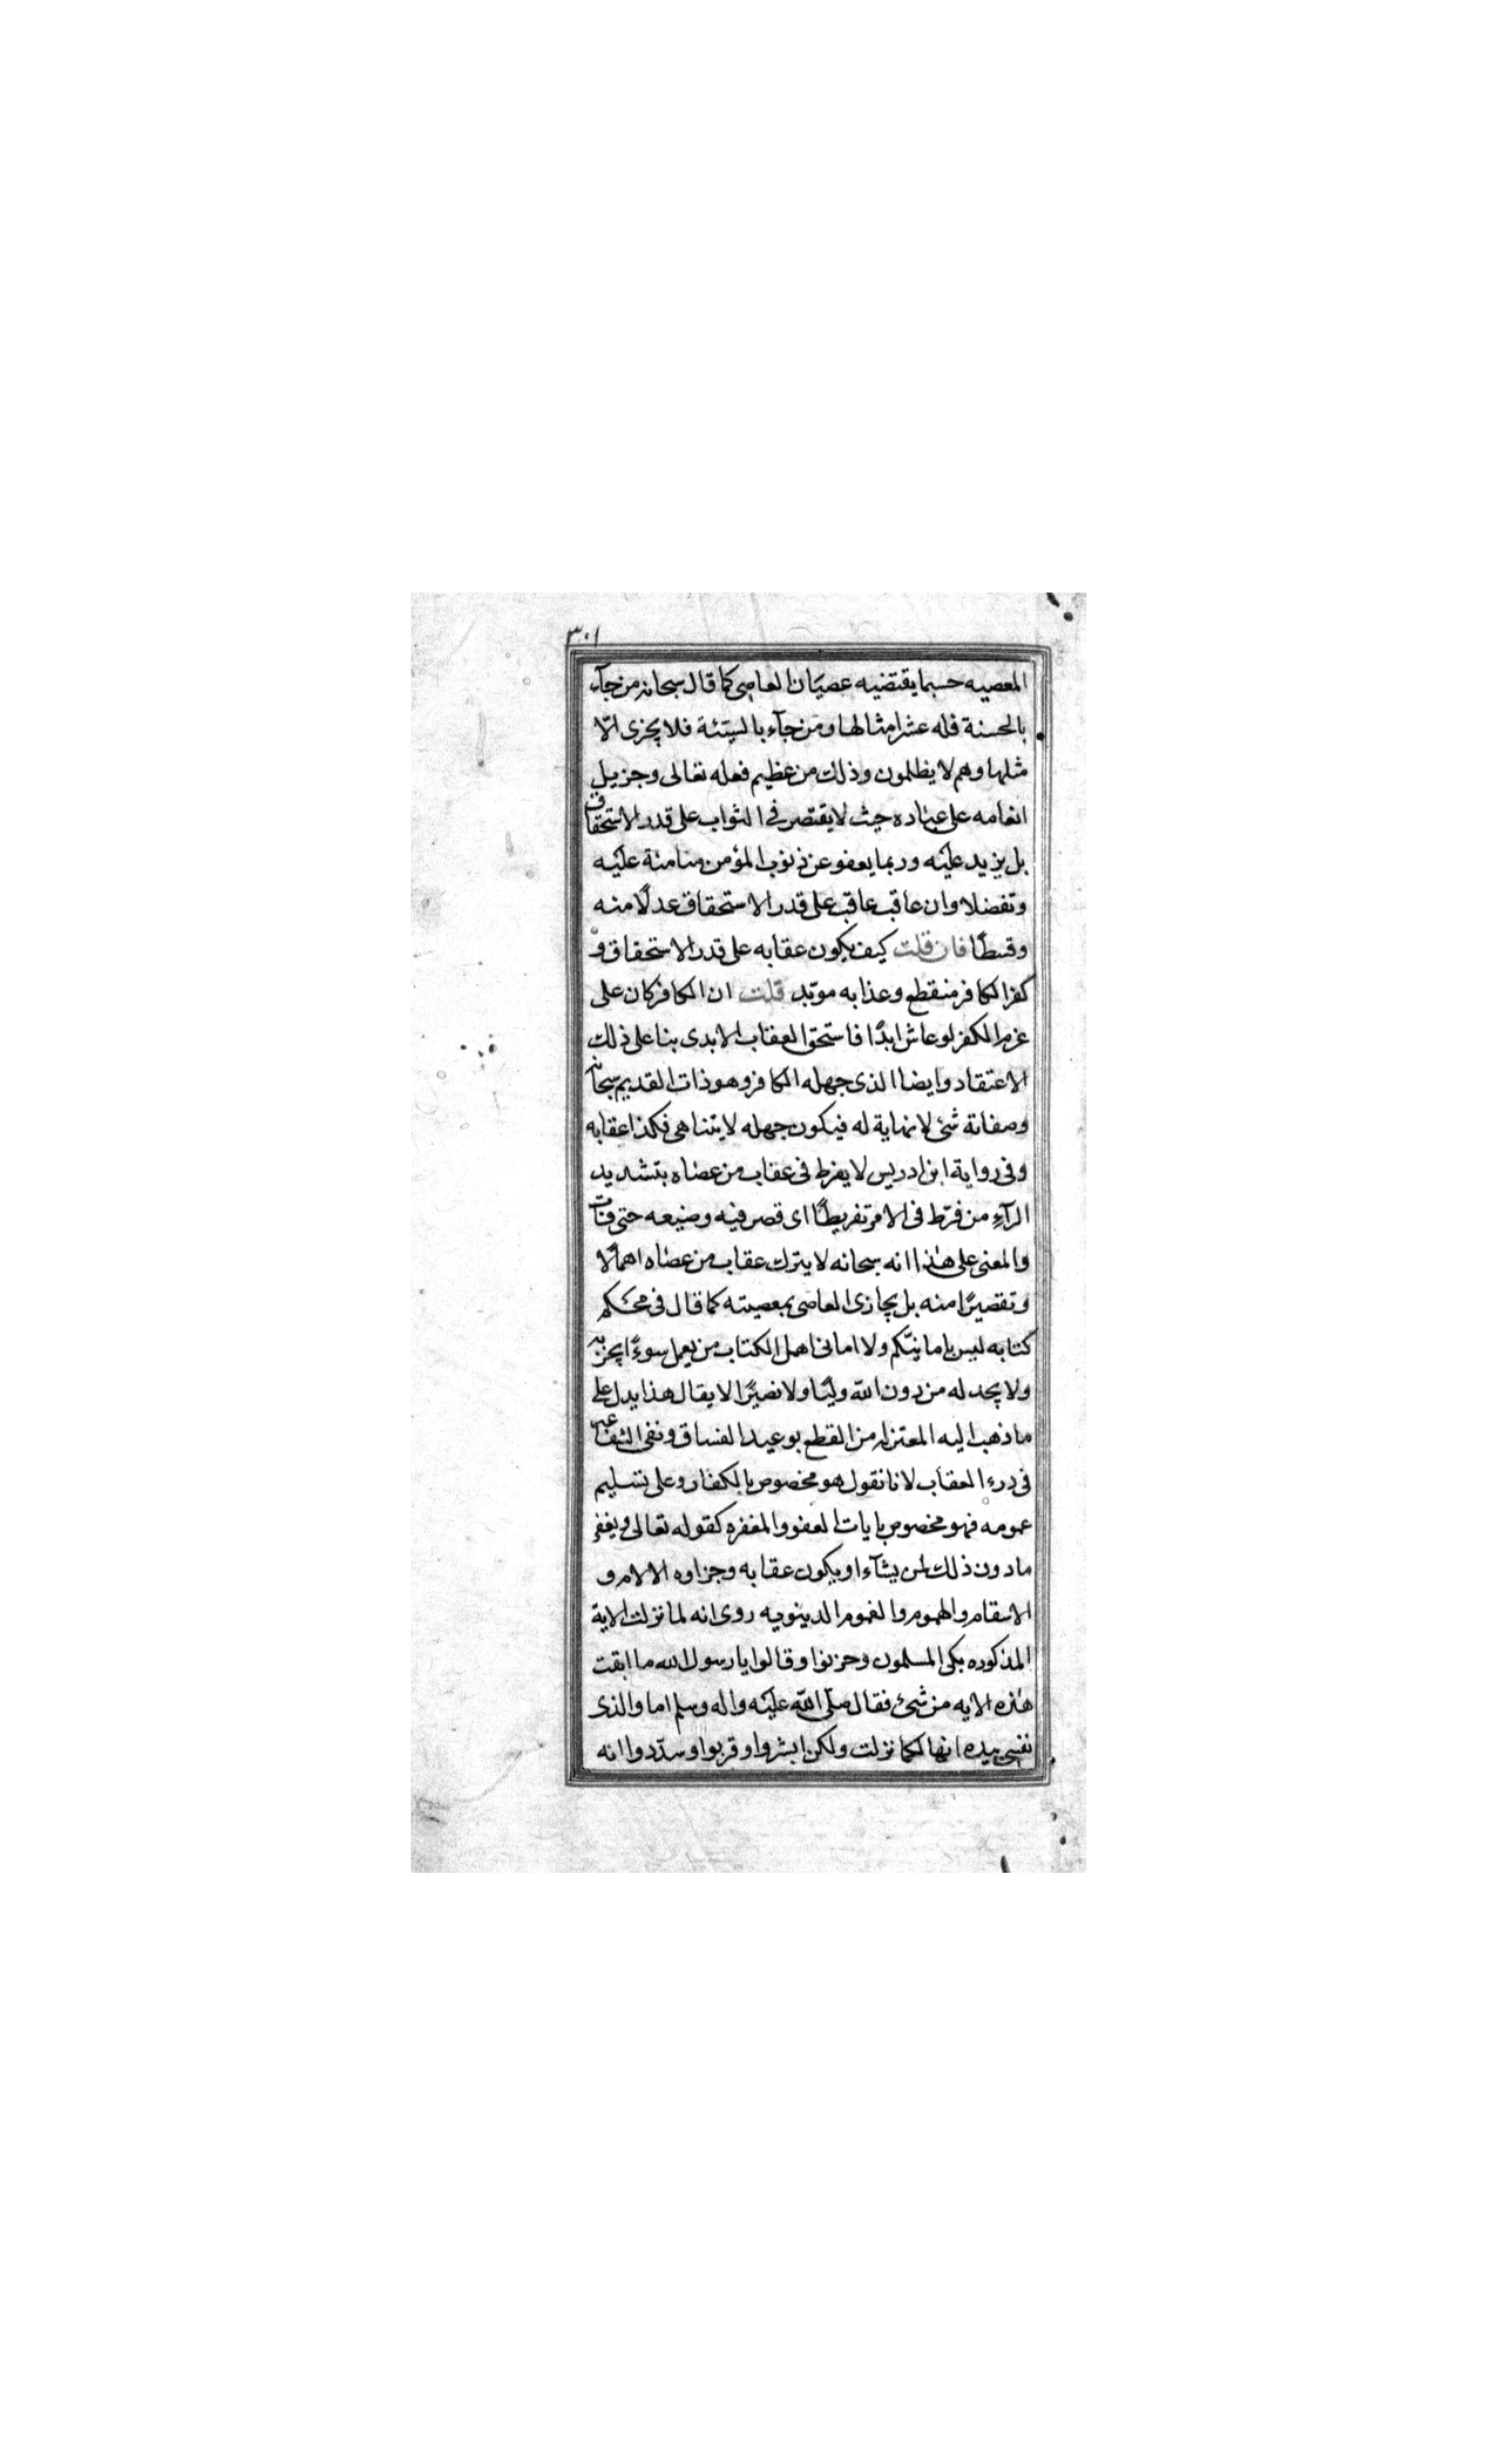 ٣٠١
المعصيه حسبما يقتضيه عصيان العاصى كما قال سبحانه من جآء
بالحسنة فله عشر امثالها ومن جآء بالسيّئة فلا يجزى الّا
مثلها وهم لا يظلمون وذلك من عظيم فعله تعالى وجزيل
انعامه على عباده حيث لا يقتصر فى الثواب على قدر الاستحقاق
بل يزيد عليه وربما يعفو عن ذنوب المؤمن منا منة عليه
وتفضلا وان عاقب عاقب على قدر الاستحقاق عدلًا منه
وقسطًا فان قلت كيف يكون عقابه على قدر الاستحقاق و
كفر الكافر منقطع وعذابه موبّد قلت ان الكافر كان على
عزم الكفر لو عاش ابدًا فاستحق العقاب الابدى بنا على ذلك
الاعتقاد وايضا الذى جهله الكافر وهو ذات القديم سبحانه
وصفاته شئ لا نهاية له فيكون جهله لا يتناهى فكذا عقابه
وفى رواية ابن ادريس لا يفرط فى عقاب من عصاه بتشديد
الرآء من فرّط فى الامر تفريطًا اى قصر فيه وضيعه حتى فات
والمعنى على هذا انه سبحانه لا يترك عقاب من عصاه اهمالًا
وتقصيرًا منه بل يجازى العاصى بمعصيته كما قال فى محكم
كتابه ليس بامانيّكم ولا امانى اهل الكتاب من يعمل سوءًا يجز به
ولا يجد له من دون الله وليًا ولا نصيرًا لا يقال هذا يدل على
ما ذهب اليه المعتزله من القطع بوعيد الفساق ونفى الشفاعه
فى درء العقاب لانا نقول هو مخصوص بالكفار وعلى تسليم
عمومه فهو مخصوص بايات العفو والمغفره كقوله تعالى ويغفر
ما دون ذلك لمن يشآء او يكون عقابه وجزاوه الالام و
الاسقام والهموم والغموم الدينويه روى انه لما نزلت الاية
المذكوره بكى المسلمون وحزنوا وقالوا يا رسول الله ما ابقت
هذه الايه من شئ فقال صلّى الله عليه واله وسلم اما والذى
نفسى بيده انها لكما نزلت ولكن ابشروا وقربوا وسدّدوا انه